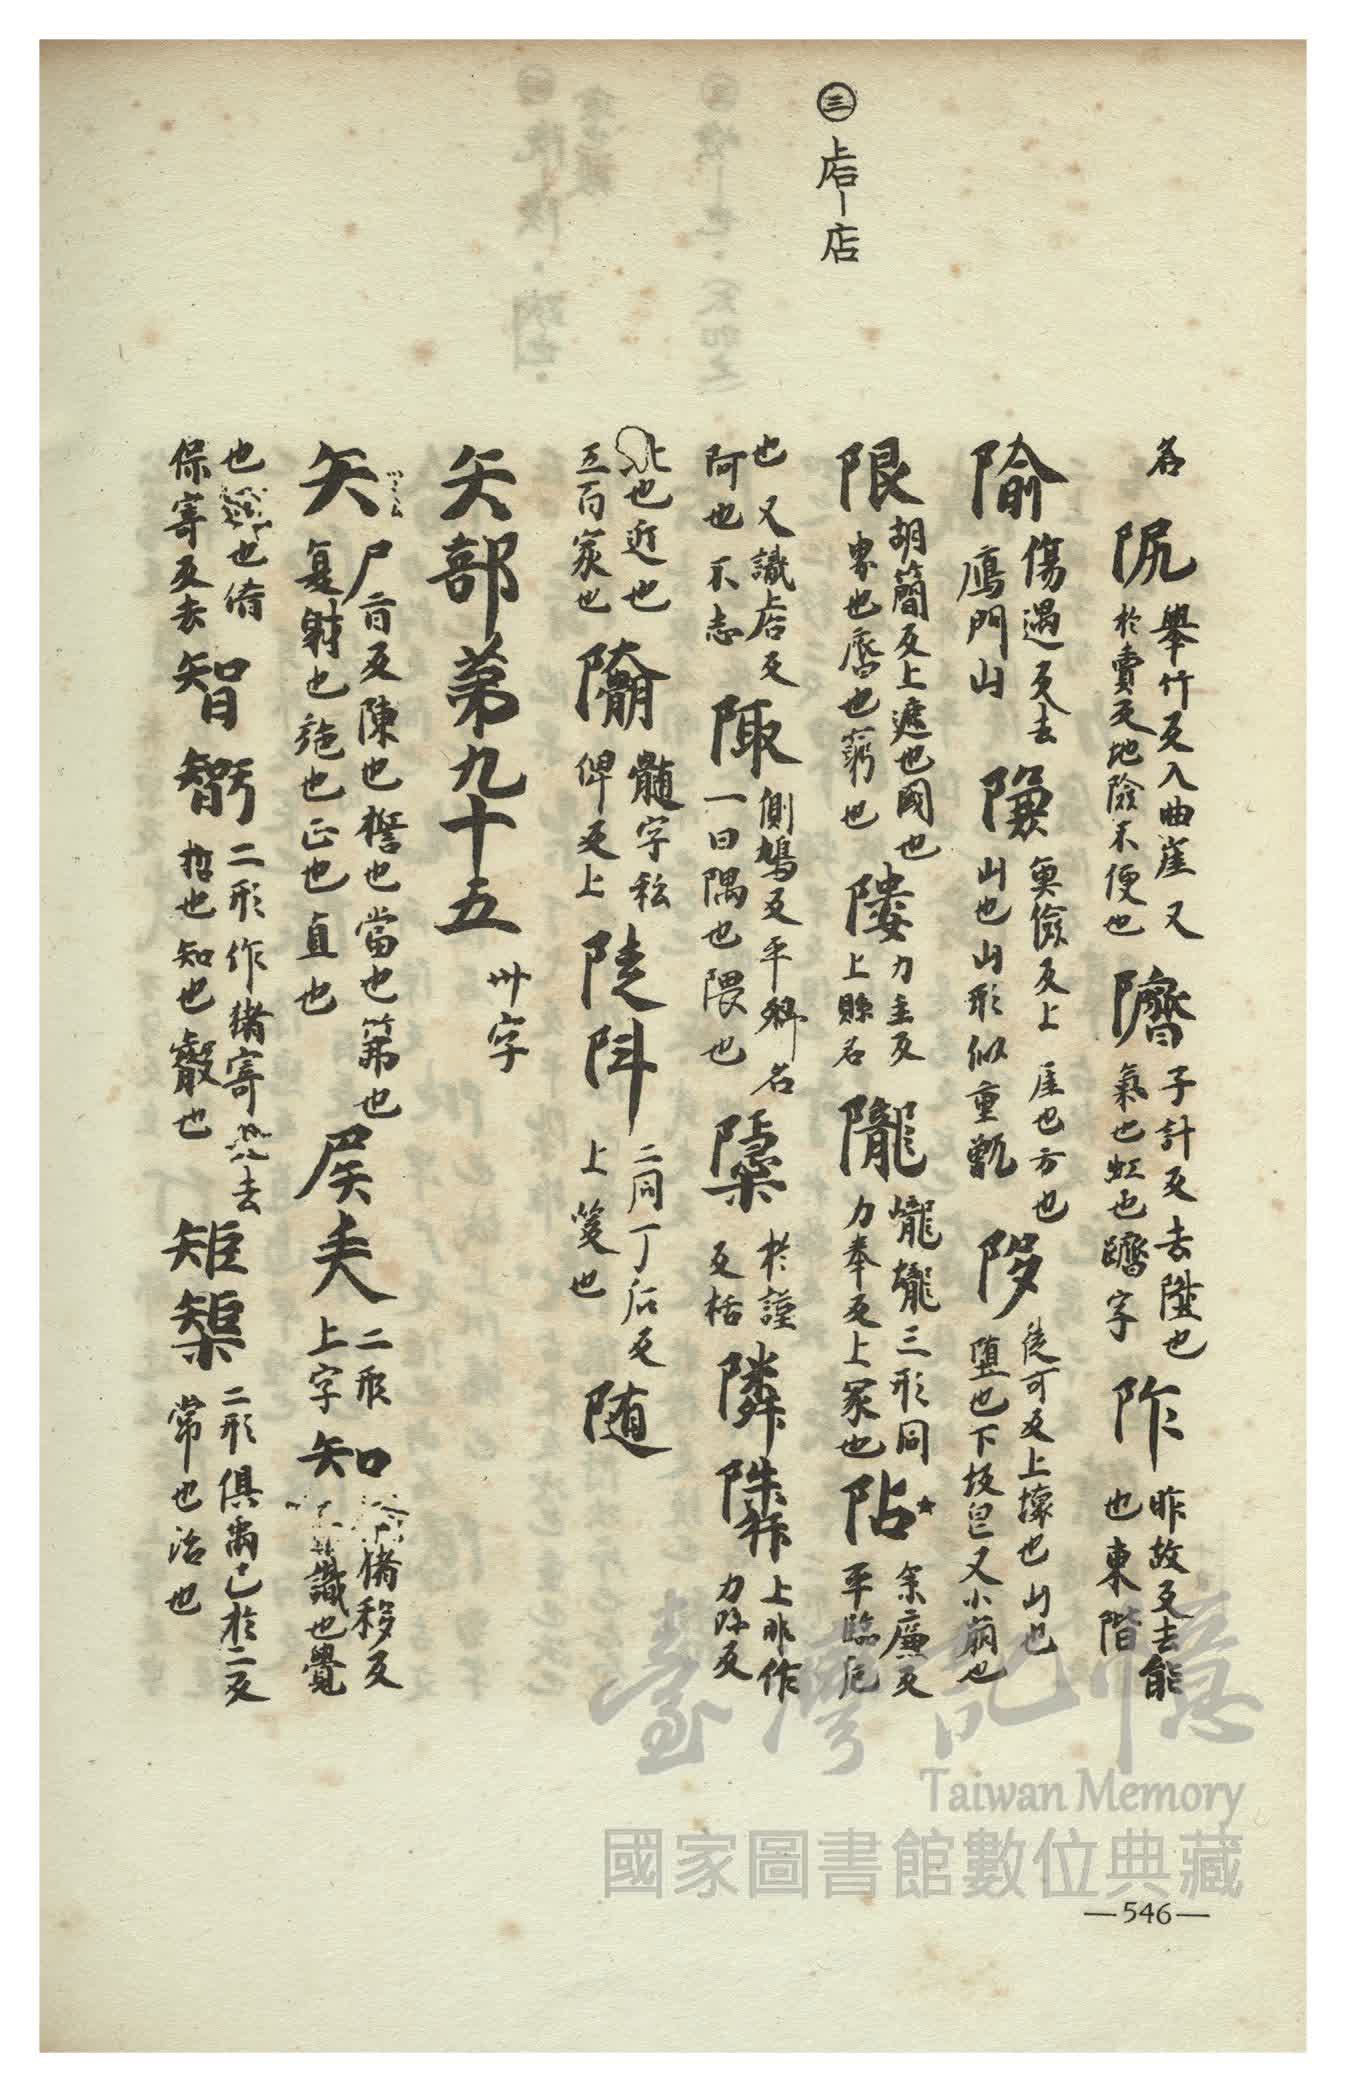 ㊂ 㡯—店
名 阭 舉竹反入曲崖又
於賣反地險不便也
隮 子計反去陞也
氣也虹也躋字
阼 昨故反去能
也東階
隃 傷遇反去
鴈門山
隒 魚儉反上 崖也方也
山也山形似重甑
陊 徒可反上壞也山也
墮也下坂皃又小崩也
限 胡簡反上遮也國也
界也齊也窮也
𨻻 力主反
上縣名
隴 巃㰍三形同
力奉反上冢也
阽 余廉反
平臨危
也又識店反
阿也不志
陬 側鳩反平鄉名
一曰隅也隈也
檃 於謹
反栝
隣 上非作
力阩反
也近也
五百家也
髓字私
俾反上
陡 阧 二同丁后反
上峻也
随
矢部第九十五 卅字
矢 尸旨反陳也誓也當也第也
复射也施也正也直也
矦 二形
上字
知 猪移反
識也覺
也 也倚
保寄反去
智 二形作猪寄 去
哲也知也
矩 榘 二形俱禹已於二反
常也法也
臺灣記憶
Taiwan Memory
國家圖書館數位典藏
—546—